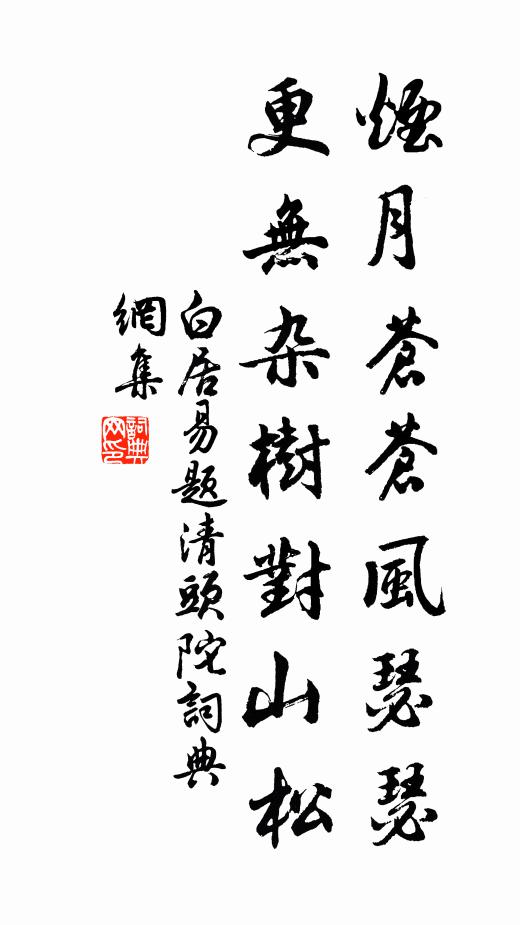 煙月蒼蒼風瑟瑟
更無杂樹對山松
白居易題清頭陀詞典
網集
詞典
网印